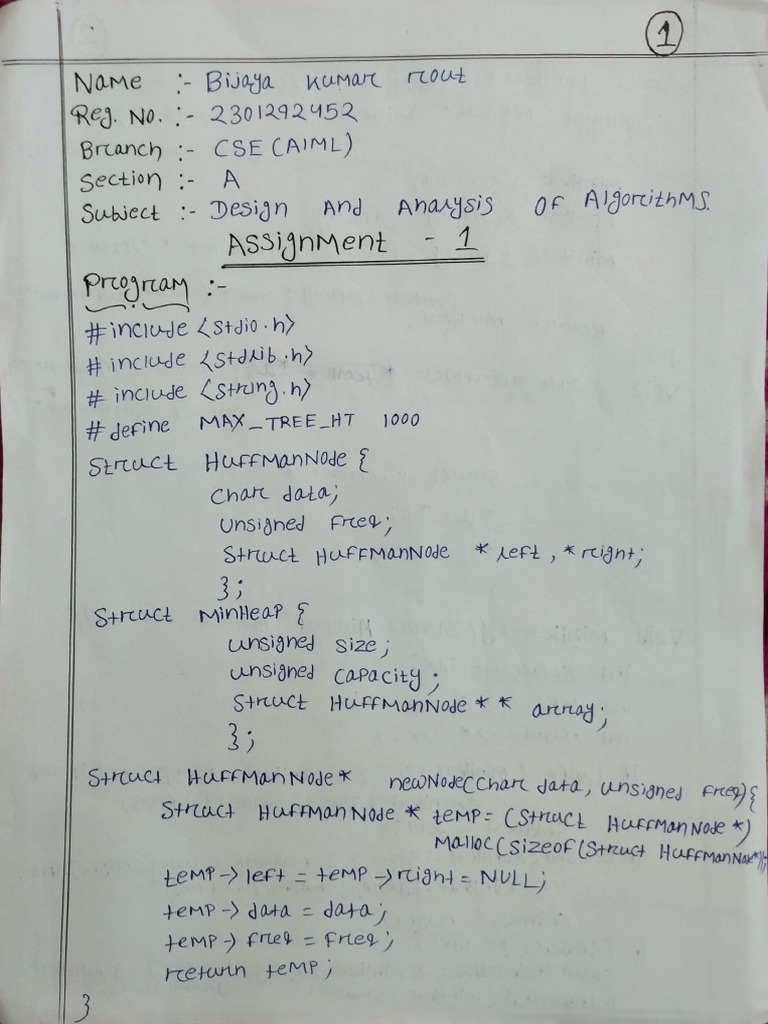 1
Name :- Bijaya Kumar rout
Reg. No. :- 2301292452
Branch :- CSE (AIML)
Section :- A
Subject :- Design And Analysis Of Algorithms.
Assignment - 1
Program :-
#include <stdio.h>
#include <stdlib.h>
#include <string.h>
#define MAX_TREE_HT 1000
Struct HuffmanNode {
char data;
unsigned freq;
Struct HuffmanNode *left, *right;
};
Struct MinHeap {
unsigned size;
unsigned capacity;
Struct HuffmanNode ** array;
};
Struct HuffmanNode* newNode(char data, unsigned freq) {
Struct HuffmanNode * temp = (Struct HuffmanNode *)
malloc(sizeof(Struct HuffmanNode*));
temp->left = temp->right = NULL;
temp->data = data;
temp->freq = freq;
return temp;
}